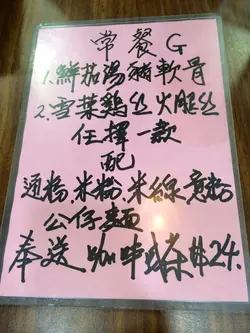 常餐G
1.鮮茄湯豬軟骨
2.雪菜鷄丝火腿丝
任擇一款
配
通粉.米粉.米線.意粉
公仔麵
奉送 咖啡或茶 #24.